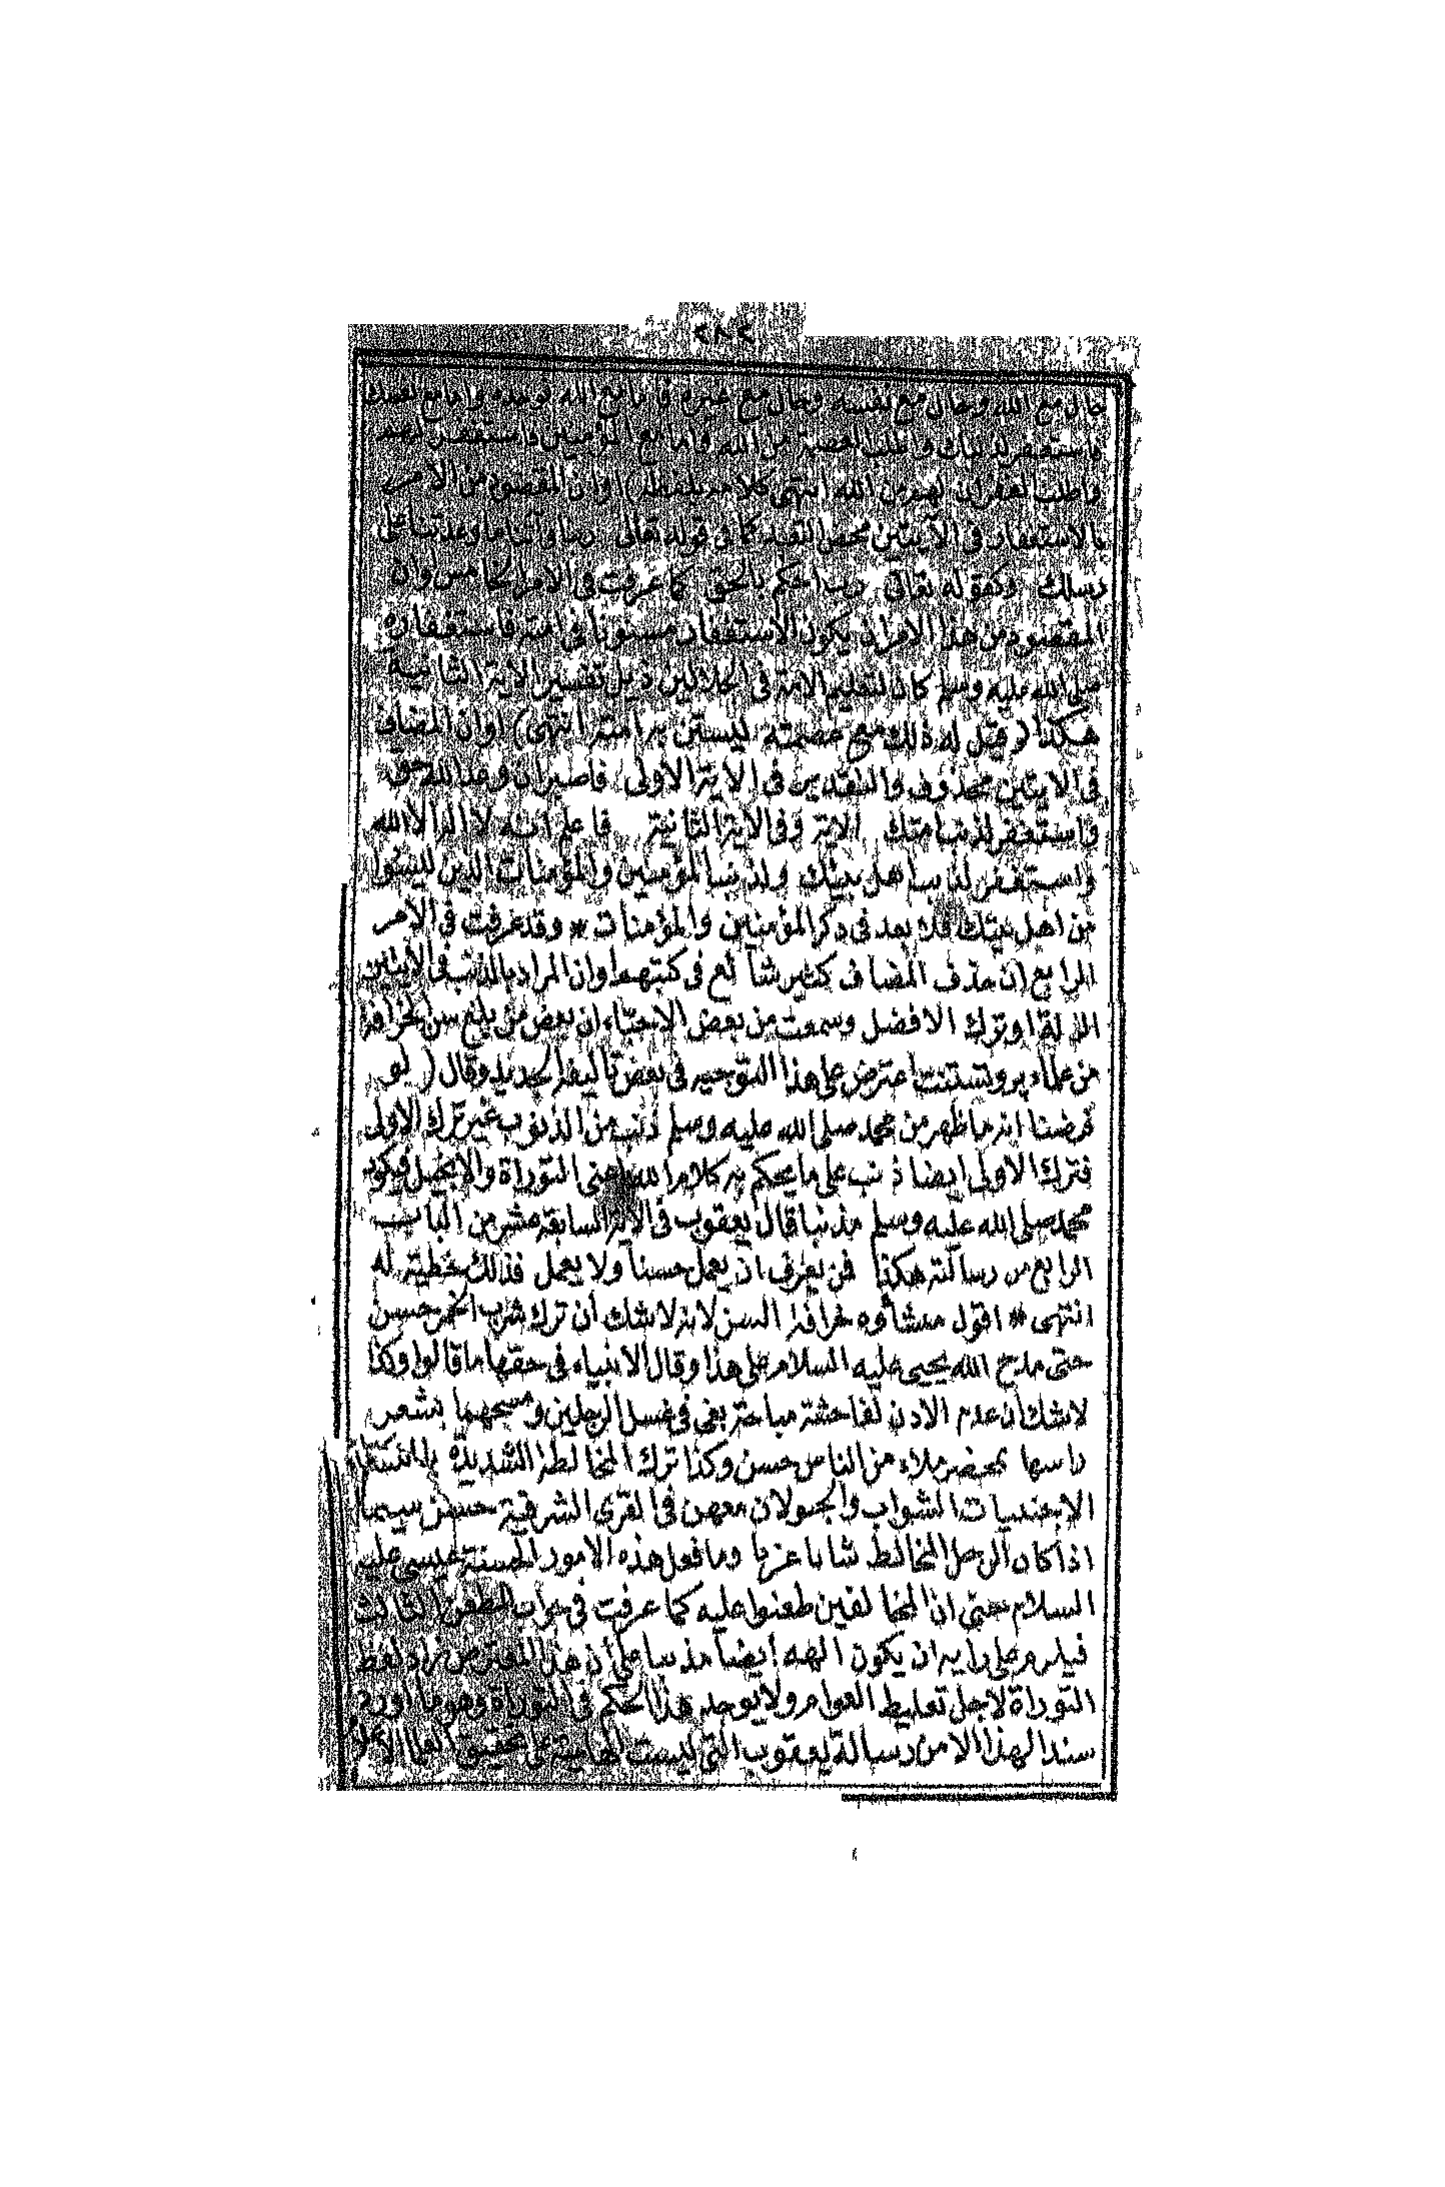 ٢٨٢
حال مع الله وحال مع نفسه وحال مع غيره فاما مع الله فوحده واما مع نفسك
فاستغفر لذنبك واطلب العصمة من الله واما مع المؤمنين فاستغفر لهم
واطلب الغفران لهم من الله انتهى كلامه بلفظه) اوان المقصود من الامر
بالاستغفار فى الآيتين محض التعبد كما فى قوله تعالى ربنا وآتنا ما وعدتنا على
رسلك وكقوله تعالى رب احكم بالحق كما عرفت فى الامر الخامس وان
المقصود من هذا الامر ان يكون الاستغفار مسنونا فى امته فاستغفاره
صلى الله عليه وسلم كان لتعليم الامة فى الجلالين ذيل تفسير الاية الثانية
هكذا (قيل له ذلك مع عصمته ليستن به امته انتهى) اوان المضاف
فى الايتين محذوف والتقدير فى الاية الاولى فاصبر ان وعد الله حق
واستغفر لذنب امتك الاية وفى الاية الثانية فاعلم انه لا اله الا الله
واستغفر لذنب اهل بيتك ولذنب المؤمنين والمؤمنات الذين ليسوا
من اهل بيتك فلا بعد فى ذكر المؤمنين والمؤمنات * وقد عرفت فى الامر
الرابع ان حذف المضاف كثير شائع فى كتبهم اوان المراد بالذنب فى الايتين
الزلة او ترك الافضل وسمعت من بعض الاحباء ان بعض من بلغ سن الخرافة
من علماء بروتستنت اعترض على هذا التوجيه فى بعض تاليفه الجديد وقال (لو
فرضنا انه ما ظهر من محمد صلى الله عليه وسلم ذنب من الذنوب غير ترك الاولى
فترك الاولى ايضا ذنب على ما يحكم به كلام الله اعنى التوراة والانجيل فيكون
محمد صلى الله عليه وسلم مذنبا قال يعقوب فى الاية السابعة عشر من الباب
الرابع من رسالته هكذا فمن يعرف ان يعمل حسنا ولا يعمل فذلك خطية له
انتهى * اقول منشاؤه خرافة السن لانه لا شك ان ترك شرب الخمر حسن
حتى مدح الله يحيى عليه السلام على هذا وقال الانبياء فى حقها ما قالوا وكذا
لا شك ان عدم الاذن لفاحشة مباحتر بغى فى غسل الرجلين ومسحهما بشعر
راسها بمحضر ملاء من الناس حسن وكذا ترك المخالطة الشديدة بالنساء
الاجنبيات الشواب والجولان معهن فى القرى الشرقية حسن سيما
اذا كان الرجل المخالط شابا عزبا وما فعل هذه الامور الحسنة عيسى عليه
السلام حتى ان المخالفين طعنوا عليه كما عرفت فى جواب الطعن الثالث
فيلزم على رايه ان يكون الهه ايضا مذنبا على أن هذا المعترض زاد لفظ
التوراة لاجل تغليط العوام ولا يوجد هذا الحكم فى التوراة وهو ما اورد
سندا لهذا الا من رسالة يعقوب التى ليست الهامية على تحقيق العلما الاعلام